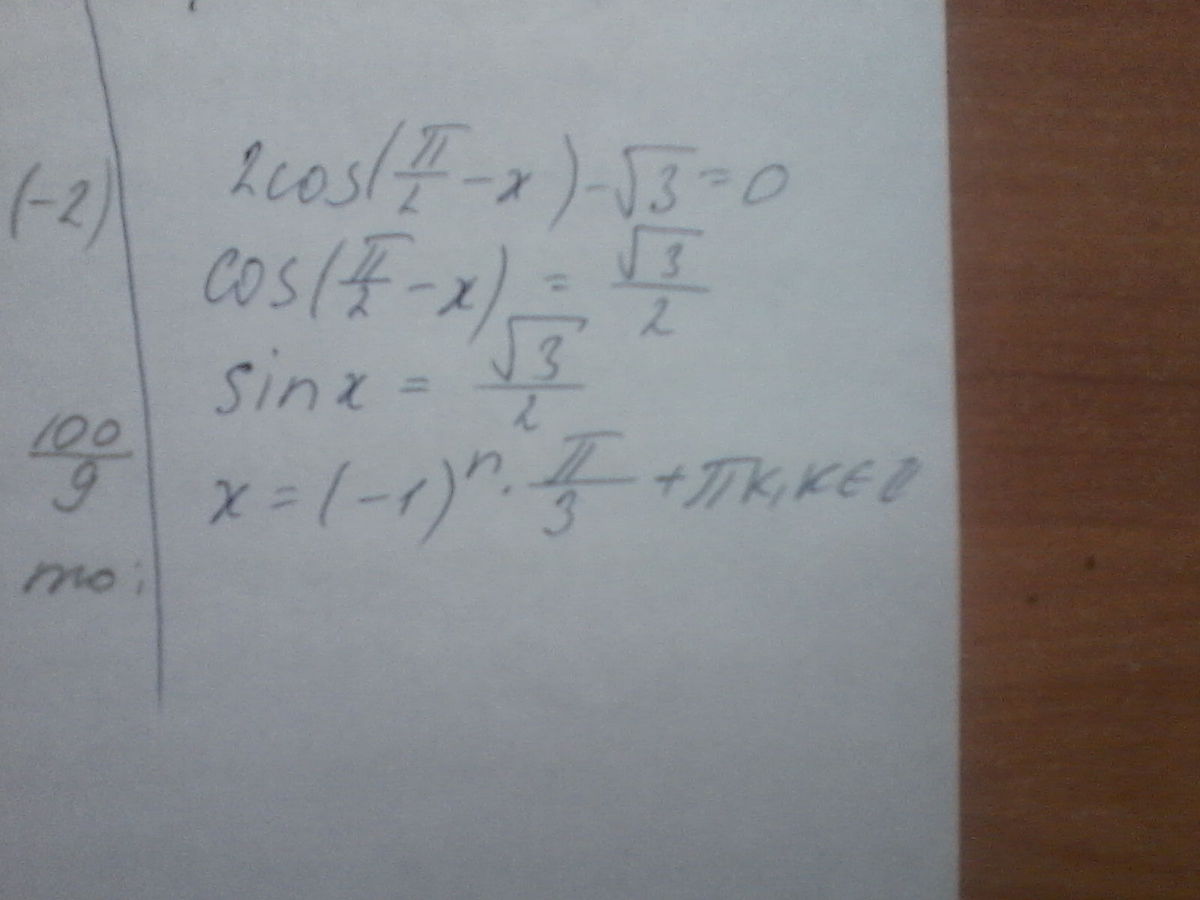 (-2)
100/9
то:
2cos(π/2 - x) - √3 = 0
cos(π/2 - x) = √3/2
sin x = √3/2
x = (-1)ⁿ · π/3 + πk, k ∈ Z